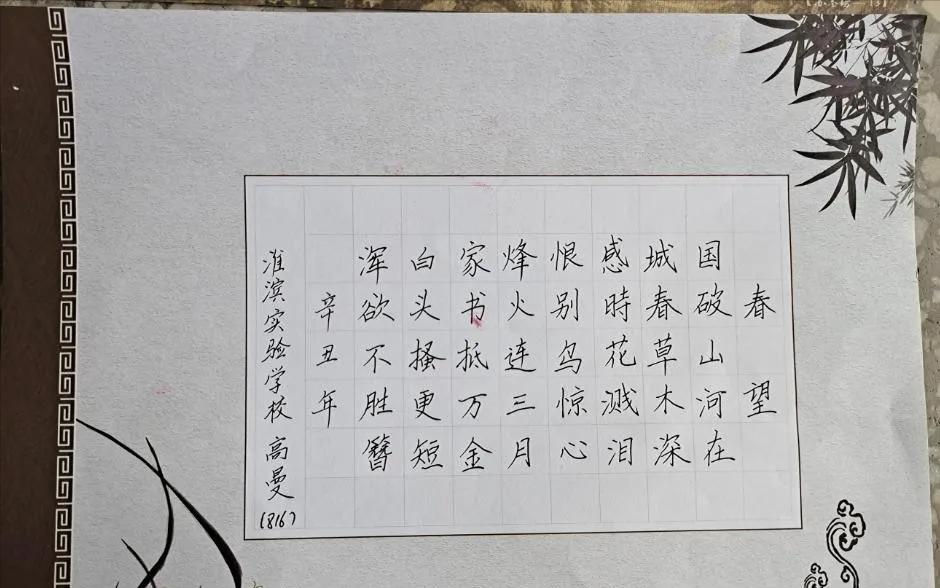 春望
国破山河在
城春草木深
感時花溅泪
恨别鸟惊心
烽火连三月
家书抵万金
白头搔更短
浑欲不胜簪
辛丑年
淮滨实验学校高曼
(816)